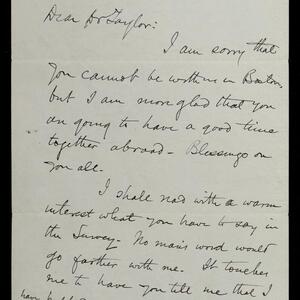 Dear Dr Taylor:
I am sorry that
you cannot be with us in Boston
but I am more glad that you
are going to have a good time
together abroad. Blessings on
you all.
I shall read with a warm
interest what you have to say in
the Survey. No man's word would
go farther with me. It touches
me to have you tell me that I
have